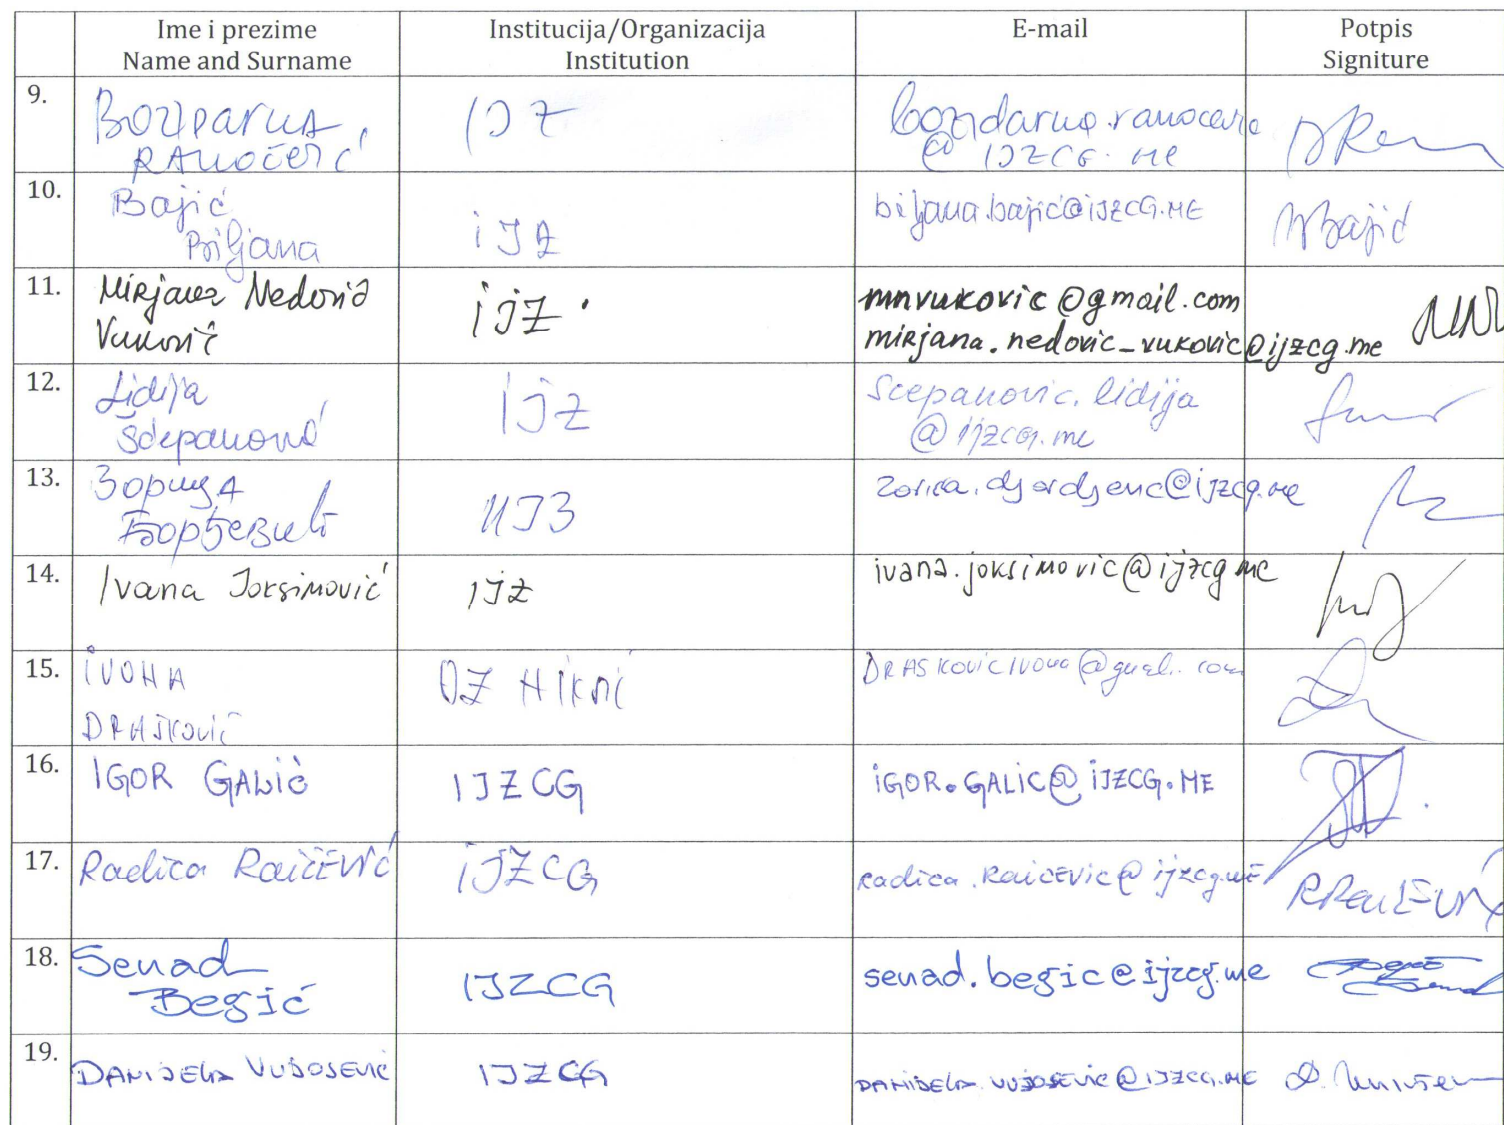 Ime i prezime Institucija/Organizacija E-mail Potpis
Name and Surname Institution Signiture
9.
Božidarka
RANOČEVIĆ
IJZ
@IJZCG.ME
10.
Bajić
Biljana
iJZ
biljana.bajić@iJZCG.ME
Bajić
11.
Mirjana Nedović
Vuković
iJZ
mnvukovic@gmail.com
mirjana.nedovic-vukovic@ijzcg.me
12.
Lidija
Šćepanović
IJZ
Scepanovic.lidija
@ijzcg.me
13.
Зорица
Ђорђевић
ИЈЗ
zorica.djordjevic@ijzcg.me
14.
Ivana Joksimović
IJZ
ivana.joksimovic@ijzcg.me
15.
IVONA
DRAŠKOVIĆ
DZ Nikšić
DRASKOVICIVONA@gmail.com
16.
IGOR GALIĆ
IJZCG
iGOR.GALIC@iJZCG.ME
17.
Radica RaičEVić
iJZCG
Radica.RaicEVic@ijzcg.mE
18.
Senad
Begić
IJZCG
senad.begic@ijzcg.me
19.
DANIJELA VUJOSEVIC
IJZCG
DANIJELA.VUJOSEVIC@IJZCG.ME